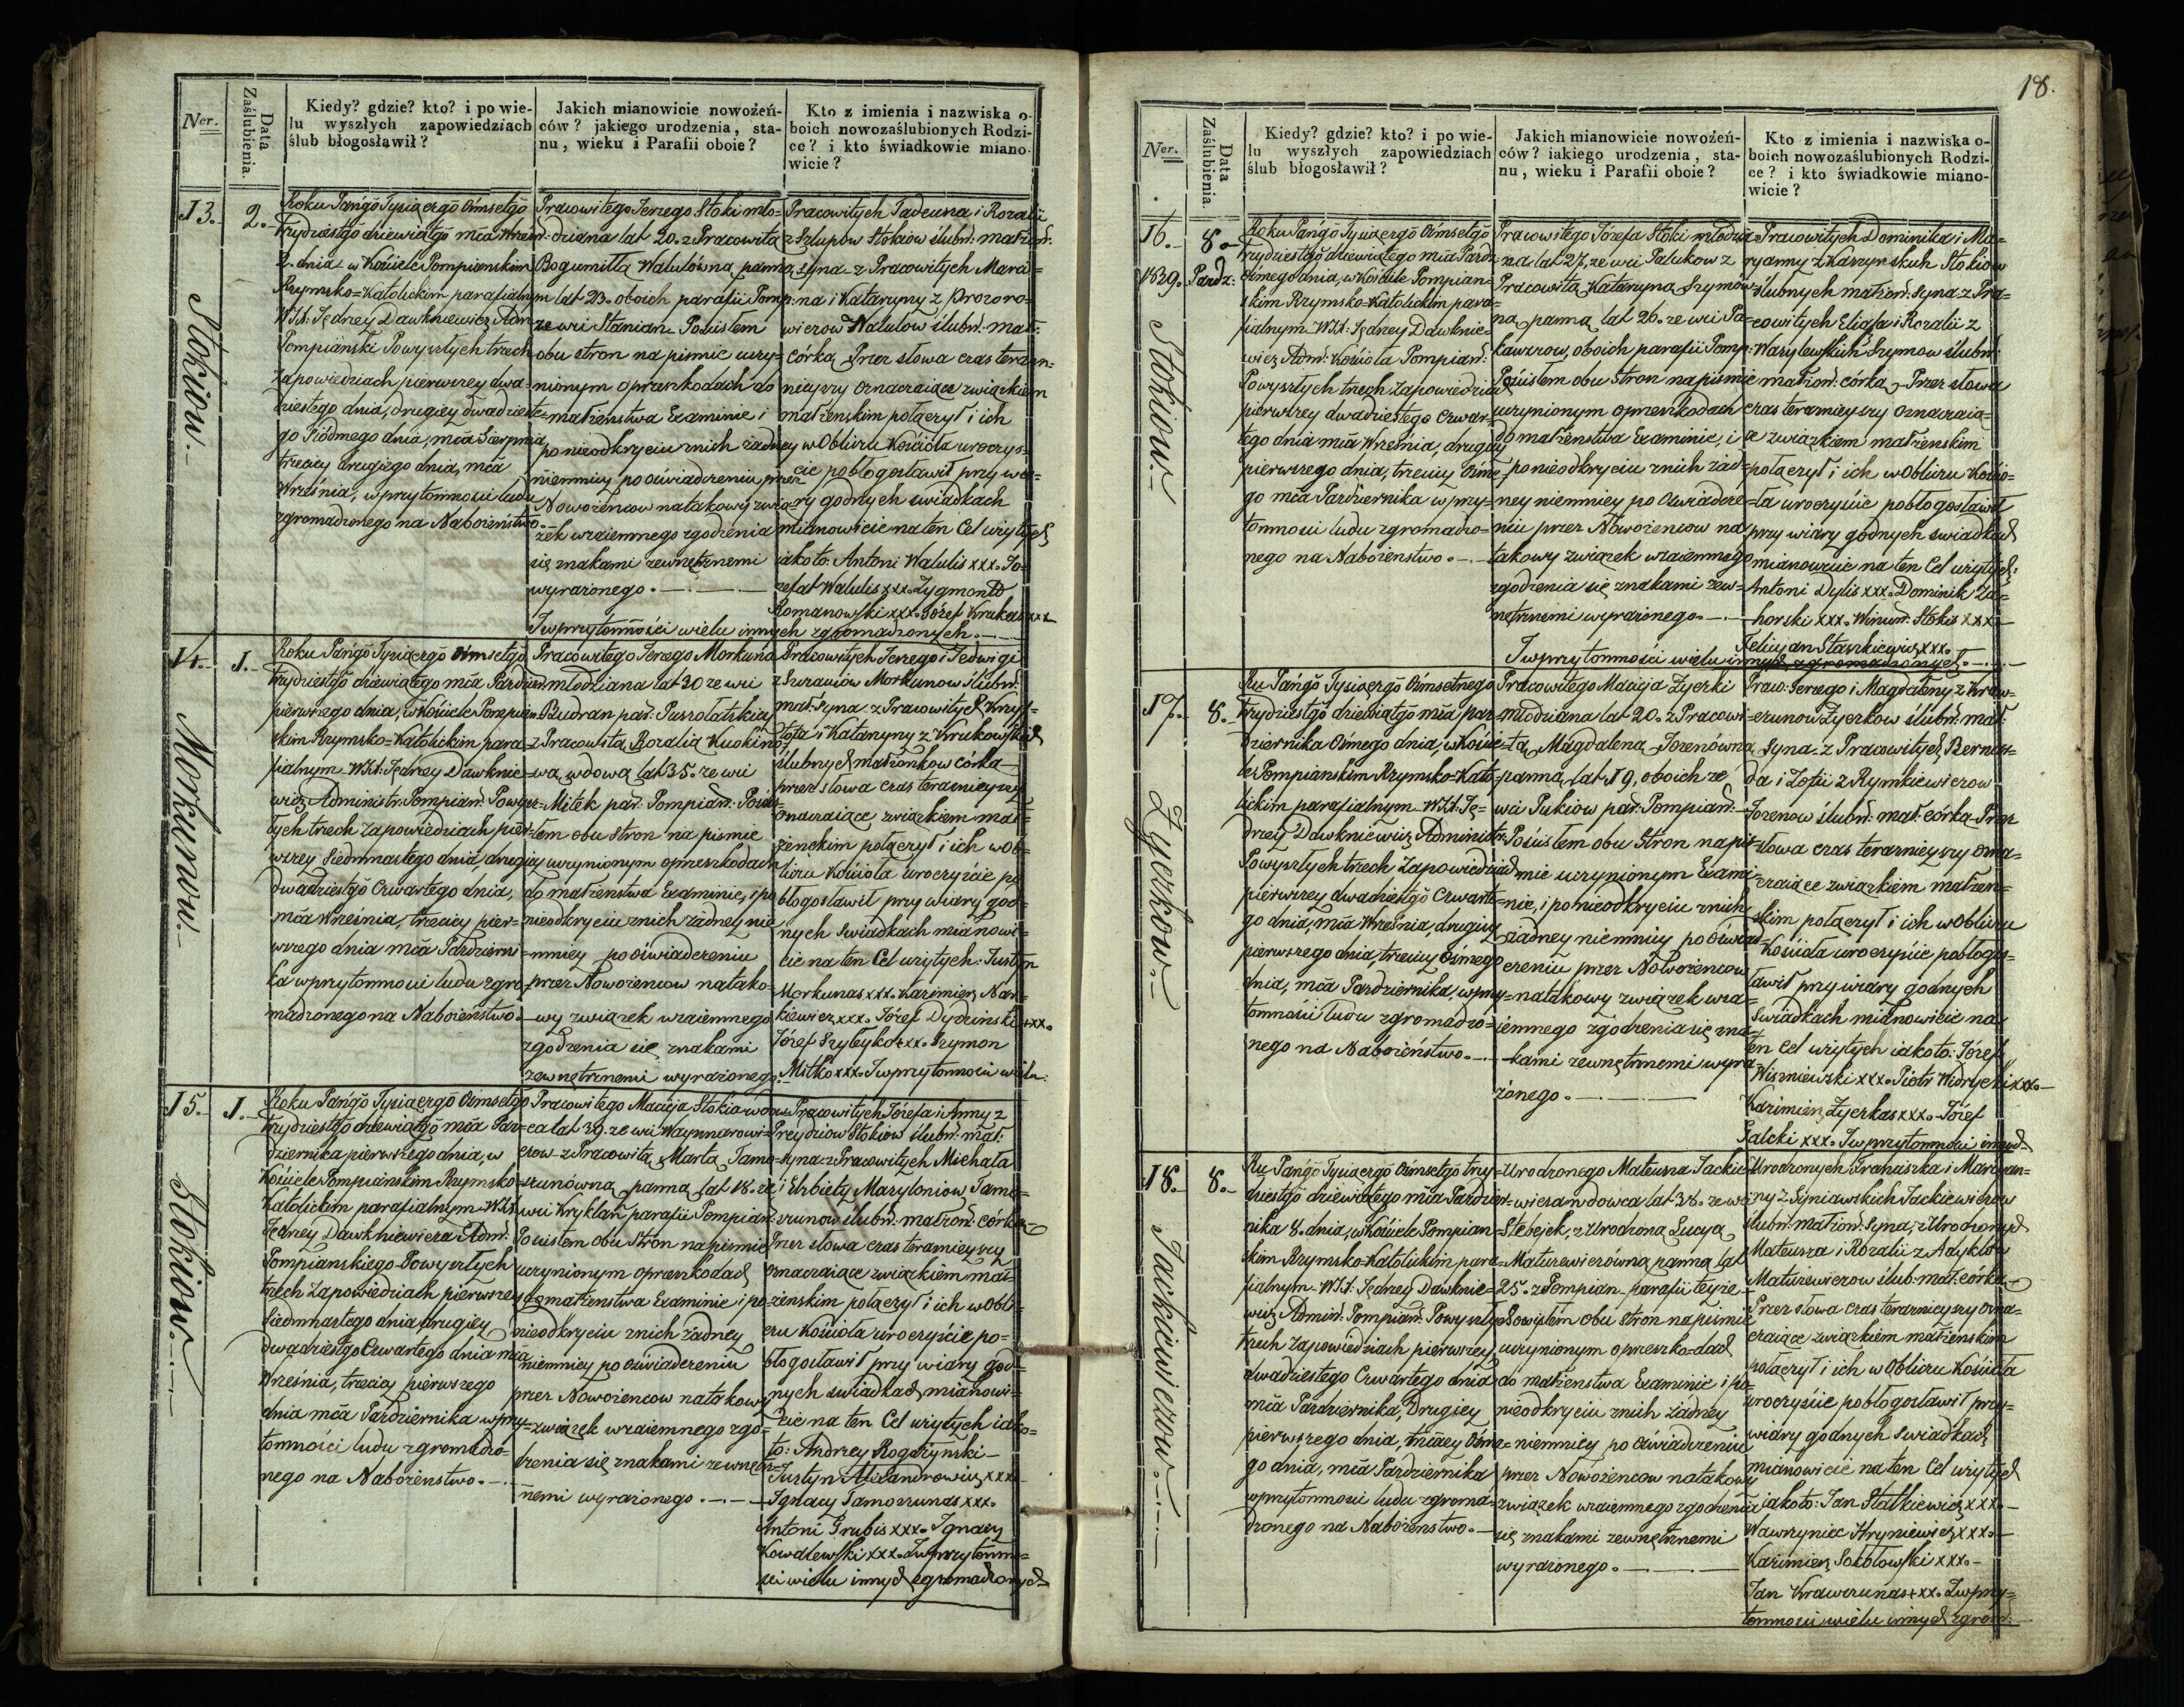 Ner.
Data Zaślubienia.
Kiedy? gdzie? kto? i po wie-
lu wyszłych zapowiedziach
ślub błogosławił?
Jakich mianowicie nowożeń-
ców? jakiego urodzenia, sta-
nu, wieku i Parafii oboie?
Kto z imienia i nazwiska o-
boich nowozaślubionych Rodzi-
ce? i kto świadkowie miano-
wicie?
13.
2.
Stokiow.
Roku Pańgō Tysiącgō Ośmsetgō
trzydziestgō dziewiątgō mca Wrześ:
2. dnia w Kościele Pompianskim
Rzymsko=Katolickim parafialnym
WJX: Jędrzey Dawkniewicz Adm
Pompiański Powyszłych trzech
zapowiedziach pierwszey dwa-
dziestego dnia, drugiey dwadzieste-
go Siódmego dnia, mca Sierpnia
trzeciey drugiego dnia, mca
Września, w przytomności ludu
zgromadzonego na Nabożeństwo.
Pracowitego Jerzego Stoki mło-
dziana lat 20. z Pracowitą
Bogumiłłą Walulówną panną
lat 23. oboich parafii Pomp:
ze wsi Stanian Poiustem
obu stron na pismie uczy-
nionym o przeszkodach do
małżenstwa Examinie i
po nieodkryciu z nich żadney
niemniey po oświadczeniu przez
Nowożencow na takowy zwią-
zek wzaiemnego zgodzenia
się znakami zewnętrznemi
wyrażonego.
Pracowitych Tadeusza i Rozalii
z Szlupow Stokiow ślubn: małżon:
syna z Pracowitych Marci=
na i Katarzyny z Prozoro-
wiczow Walulow ślubn: mał:
córką, Przez słowa czas teraz-
nieyszy oznaczaiące związkiem
małżenskim połączył i ich
w Obliczu Kościoła uroczyś-
cie pobłogosławił przy wia-
ry godnych swiadkach
mianowicie na ten Cel użytych
iako to: Antoni Walulis xxx. Jo-
zefat Walulis xxx. Zygmontd
Romanowski xxx. Jozef Krukas xxx
I w przytomności wielu innych zgromadzonych.
14.
1.
Morkunow.
Roku Pańgō Tysiącgō Ośmsetgō
trzydziestgō dziewiątego mca Pazdzier:
pierwszego dnia, w Kościele Pompian
skim Rzymsko=Katolickim para-
fialnym WJX: Jędrzey Dawknie-
wicz Administr: Pompiań: Powysz-
łych trzech Zapowiedziach pier-
wszey Siedmnastego dnia, drugiey
dwadziestgō Czwartego dnia,
mca Września, trzeciey pier-
wszego dnia mca Pazdzierni-
ka w przytomności ludu zgro-
madzonego na Nabożeństwo.
Pracowitego Jerzego Morkuna
młodziana lat 30 ze wsi
Budran par: Puszołatskiey
z Pracowitą Rozalią Kuokino
wą, wdową lat 35. ze wsi
Mitek par: Pompiań: Poius-
tem obu stron na pismie
uczynionym o przeszkodach
do małżenstwa Examinie, i po
nieodkryciu z nich żadney nie
mniey po oświadczeniu
przez Nowożencow na tako-
wy związek wzaiemnego
zgodzenia się znakami
zewnętrznemi wyrażonego.
Pracowitych Jerzego i Jedwigi
Morkunow ślubn:
mał: syna z Pracowitych Krzysz-
tofa i Katarzyny z Krukowskich
ślubnych małżonkow córka
przez słowa czas teraznieyszy
oznaczaiące związkiem mał-
żenskim połączył i ich w Ob-
liczu Kościoła uroczyście po
błogosławił przy wiary god-
nych swiadkach mianowi-
cie na ten Cel użytych: Justyn
Morkunas xxx. Kazimierz Nar-
kiewicz xxx. Józef Dyrzinski xxx.
Józef Szyleyko xxx. Szymon
Mitko xxx. I w przytomności wielu.
15.
1.
Stokiow.
Roku Pańgō Tysiącgō Ośmsetgō
trzydziestgō dziewiątgō mca Paz-
dziernika pierwszego dnia, w
Kościele Pompianskim Rzymsko-
Katolickim parafialnym WJX
Jędrzey Dawkniewicza Adm:
Pompianskiego Powyszłych
trzech Zapowiedziach pierwszey
Siedmnastego dnia, drugiey
dwadziestgō Czwartego dnia mca
Września, trzeciey pierwszego
dnia mca Pazdziernika w przy-
tomności ludu zgromadzo-
nego na Nabożenstwo.
Pracowitego Macieja Stokia wdow-
ca lat 39. ze wsi Waynnarowi-
czow z Pracowitą Martą Tamo-
szunówną panną lat 18. ze
wsi Kryklań parafii Pompiań:
Poiustem obu stron na pismie
uczynionym o przeszkodach
do małżenstwa Examinie i po
nieodkryciu z nich żadney
niemniey po oświadczeniu
przez Nowożencow na takowy
związek wzaiemnego zgo-
dzenia się znakami zewnętrz-
nemi wyrażonego.
Pracowitych Józefa i Anny z
Preydziow Stokiow ślubn: mał:
syna z Pracowitych Michała
i Elzbiety Maryloniow Tamo-
szunow ślubn: małżon: córką
Przez słowa czas teraznieyszy
oznaczaiące związkiem mał-
żenskim połączył i ich w Obli-
czu Kościoła uroczyście po-
błogosławił przy wiary god-
nych swiadkach mianowi-
cie na ten Cel użytych iako-
to: Andrzey Rogożynski
Justyn Alexandrowicz xxx
Ignacy Tamoszunas xxx.
Antoni Grubis xxx. Ignacy
Kowalewski xxx. I w przytomno-
sci wielu innych zgromadzonych
18.
Ner.
Data Zaślubienia.
Kiedy? gdzie? kto? i po wie-
lu wyszłych zapowiedziach
ślub błogosławił?
Jakich mianowicie nowożeń-
ców? iakiego urodzenia, sta-
nu, wieku i Parafii oboie?
Kto z imienia i nazwiska o-
boich nowozaślubionych Rodzi-
ce? i kto świadkowie miano-
wicie?
16.
8.
1839. Pazdz:
Stokiow.
Roku Pańgō Tysiącgō Ośmsetgō
trzydziestgō dziewiątego mca Pazdz:
Osmego dnia, w Kościele Pompian-
skim Rzymsko-Katolickim para-
fialnym WJX: Jędrzey Dawknie-
wicz Adm: Kościoła Pompiań:
Powyszłych trzech Zapowiedziach
pierwszey dwadziestego Czwar-
tego dnia mca Września, drugiey
pierwszego dnia, trzeciey Osme-
go mca Pazdziernika w przy-
tomności ludu zgromadzo-
nego na Nabożenstwo.
Pracowitego Jozefa Stoki młodzia-
na lat 27. ze wsi Palukow z
Pracowitą Katarzyną Szymow-
na, panną lat 26. ze wsi Pa-
ławzrow, oboich parafii Pomp:
Poiustem obu stron na pismie
uczynionym o przeszkodach
do małżenstwa Examinie, i
po nieodkryciu z nich żad-
ney niemniey po oświadcze-
niu przez Nowożencow na
takowy związek wzaiemnego
zgodzenia się znakami zew-
nętrznemi wyrażonego.
Pracowitych Dominika i Ma-
ryanny z Kaszynskich Stokiow
ślubnych małżon: syna z Pra-
cowitych Eliasa i Rozalii z
Wasylewskich Szymow ślubn:
małżon: córką, Przez słowa
czas teraznieyszy oznaczaią-
ce związkiem małżenskim
połączył i ich w Obliczu Kościo-
ła uroczyście pobłogosławił
przy wiary godnych swiadkach
mianowicie na ten Cel użytych:
Antoni Dylis xxx. Dominik Za-
horski xxx. Winun: Stokis xxx
Felicyan Staszkiewicz xxx.
I w przytomności wielu innych zgromadzonych.
17.
8.
Zyerkow.
Ru Pańgō Tysiącgō Ośmsetnego
trzydziestgō dziewiątgō mca Paz-
dziernika Osmego dnia, w Koście-
le Pompianskim Rzymsko-Kato-
lickim parafialnym WJX: Ję-
drzey Dawkniewicz Administr:
Powyszłych trzech Zapowiedziach
pierwszey dwadziestgō Czwarte-
go dnia, mca Września, drugiey
pierwszego dnia, trzeciey Osmego
dnia, mca Pazdziernika, w przy-
tomności ludu zgromadzo-
nego na Nabożeństwo.
Pracowitego Macieja Zyerki
młodziana lat 20. z Pracowi-
tą Magdaleną Jozenówną
panną, lat 19. oboich ze
wsi Pukiow par: Pompiań:
Poiustem obu Stron na pis-
mie uczynionym Exami-
nie, i po nieodkryciu z nich
żadney niemniey po oświad-
czeniu przez Nowożencow
na takowy związek wza-
iemnego zgodzenia się zna-
kami zewnętrznemi wyra-
żonego.
Praw: Jerzego i Magdaleny z Kraw-
czunow Zyerkow ślubn: mał:
syna z Pracowitych Bernar-
da i Zofii z Rymkiewiczow
Jozenow ślubn: mał: córką Przez
słowa czas teraznieyszy ozna-
czaiące związkiem małżen-
skim połączył i ich w Obliczu
Kościoła uroczyście pobłogo-
sławił przy wiary godnych
Swiadkach mianowicie na
ten Cel użytych iako to: Józef
Wiszniewski xxx. Piotr Widrycki xxx.
Kazimierz Zyerkas xxx. Józef
Galcki xxx. I w przytomności innych
18.
8.
Jackiewiczow.
Ru Pańgō Tysiącgō Ośmsetgō trzy-
dziestgō dziewiątego mca Pazdzier-
nika 8. dnia, w Kościele Pompian-
skim Rzymsko-Katolickim para-
fialnym WJX: Jędrzey Dawknie-
wicz Admin: Pompiań: Powyszłych
trzech Zapowiedziach pierwszey
dwadziestego Czwartego dnia
mca Pazdziernika, Drugiey
pierwszego dnia, trzeciey Osme-
go dnia, mca Pazdziernika
w przytomności ludu zgroma-
dzonego na Nabożenstwo.
Urodzonego Mateusza Jackie-
wicza wdowca lat 38. ze wsi
Stebejek, z Urodzoną Lucyą
Matuzewiczówną panną lat
25. z Pompian parafii teyże
Powistem obu stron na pismie
uczynionym o przeszko-dach
do małżenstwa Examinie i po
nieodkryciu z nich żadney
niemniey po oświadczeniu
przez Nowożencow na takowy
związek wzaiemnego zgodzenia
się znakami zewnętrznemi
wyrażonego.
Urodzonych Franciszka i Maryan-
ny z Syniawskich Jackiewiczow
ślubn: małżon: syna, z Urodzonych
Mateusza i Rozalii z Adyklow
Matuzewiczow ślub: mał: córką
Przez słowa czas teraznieyszy ozna-
czaiące związkiem małżenskim
połączył i ich w Obliczu Kościoła
uroczyście pobłogosławił przy
wiary godnych Swiadkach
mianowicie na ten Cel użytych
iako to: Jan Statkiewicz xxx.
Wawrzyniec Hryniewicz xxx.
Kazimierz Sokołowski xxx.
Jan Krawczunas xxx. I w przy-
tomności wielu innych zgrom: